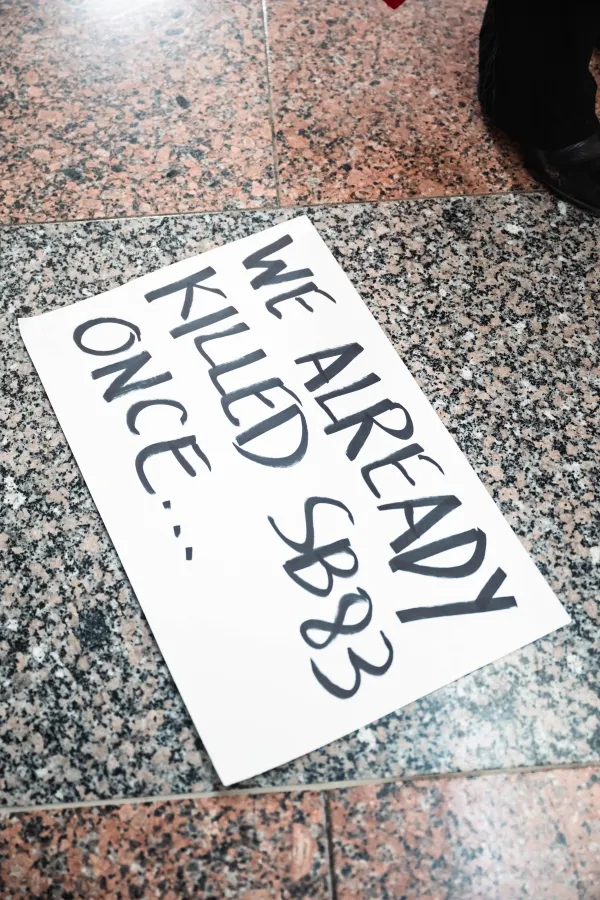 WE ALREADY
KILLED SB83
ONCE...